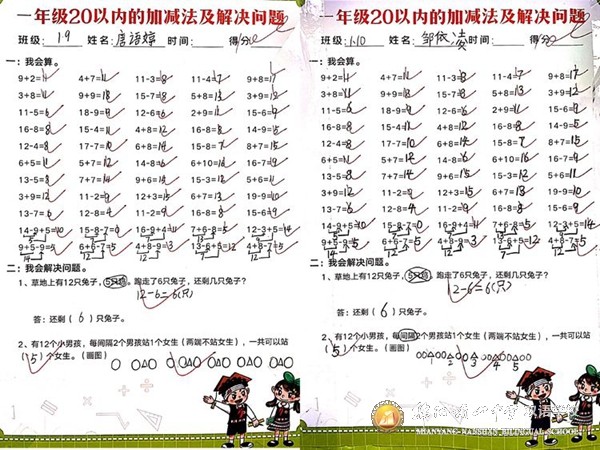 一年级20以内的加减法及解决问题
班级: 19 姓名: 唐语婷 时间: 得分:
一: 我会算。
9+2=11 4+7=11 11-3=8 11-4=7 9+8=17
3+8=11 9+9=18 15-7=8 5+8=13 3+9=12
11-5=6 18-9=9 12-6=6 2+9=11 15-6=9
16-8=8 15-4=11 4+8=12 16-8=8 14-9=5
12-4=8 17-7=10 6+8=14 15-8=7 8+7=15
6+5=11 5+7=12 14-8=6 6+10=16 16-7=9
13-5=8 7+7=14 9+6=15 5+8=13 14-5=9
3+9=12 11-2=9 12+3=15 6+7=13 19-9=10
13-7=6 12-8=4 11-2=9 16-8=8 15-6=9
14-9+5=10 15-8-7=0 16-9+4=11 7+6-8=5 12-3+5=14
9+5-9=5 6+6-7=5 4+8-9=3 13-6+5=12 4+8-7=5
二: 我会解决问题。
1、草地上有12只兔子, 5只鸡, 跑走了6只兔子, 还剩几只兔子?
12-6=6(只)
答: 还剩( 6 )只兔子。
2、有12个小男孩, 每间隔2个男孩站1个女生 (两端不站女生), 一共可以站
( 5 )个女生。(画图)
一年级20以内的加减法及解决问题
班级: 1.10 姓名: 邹依凌 时间: 得分:
一: 我会算。
9+2=11 4+7=11 11-3=8 11-4=7 9+8=17
3+8=11 9+9=18 15-7=8 5+8=13 3+9=12
11-5=6 18-9=9 12-6=6 2+9=11 15-6=9
16-8=8 15-4=11 4+8=12 16-8=8 14-9=5
12-4=8 17-7=10 6+8=14 15-8=7 8+7=15
6+5=11 5+7=12 14-8=6 6+10=16 16-7=9
13-5=8 7+7=14 9+6=15 5+8=13 14-5=9
3+9=12 11-2=9 12+3=15 6+7=13 19-9=10
13-7=6 12-8=4 11-2=9 16-8=8 15-6=9
14-9+5=10 15-8-7=0 16-9+4=11 7+6-8=5 12-3+5=14
9+5-9=5 6+6-7=5 4+8-9=3 13-6+5=12 4+8-7=5
二: 我会解决问题。
1、草地上有12只兔子, 5只鸡, 跑走了6只兔子, 还剩几只兔子?
12-6=6(只)
答: 还剩( 6 )只兔子。
2、有12个小男孩, 每间隔2个男孩站1个女生 (两端不站女生), 一共可以站
( 5 )个女生。(画图)
1 2 3 4 5
SHANYANG NANSHAN BILINGUAL SCHOOL